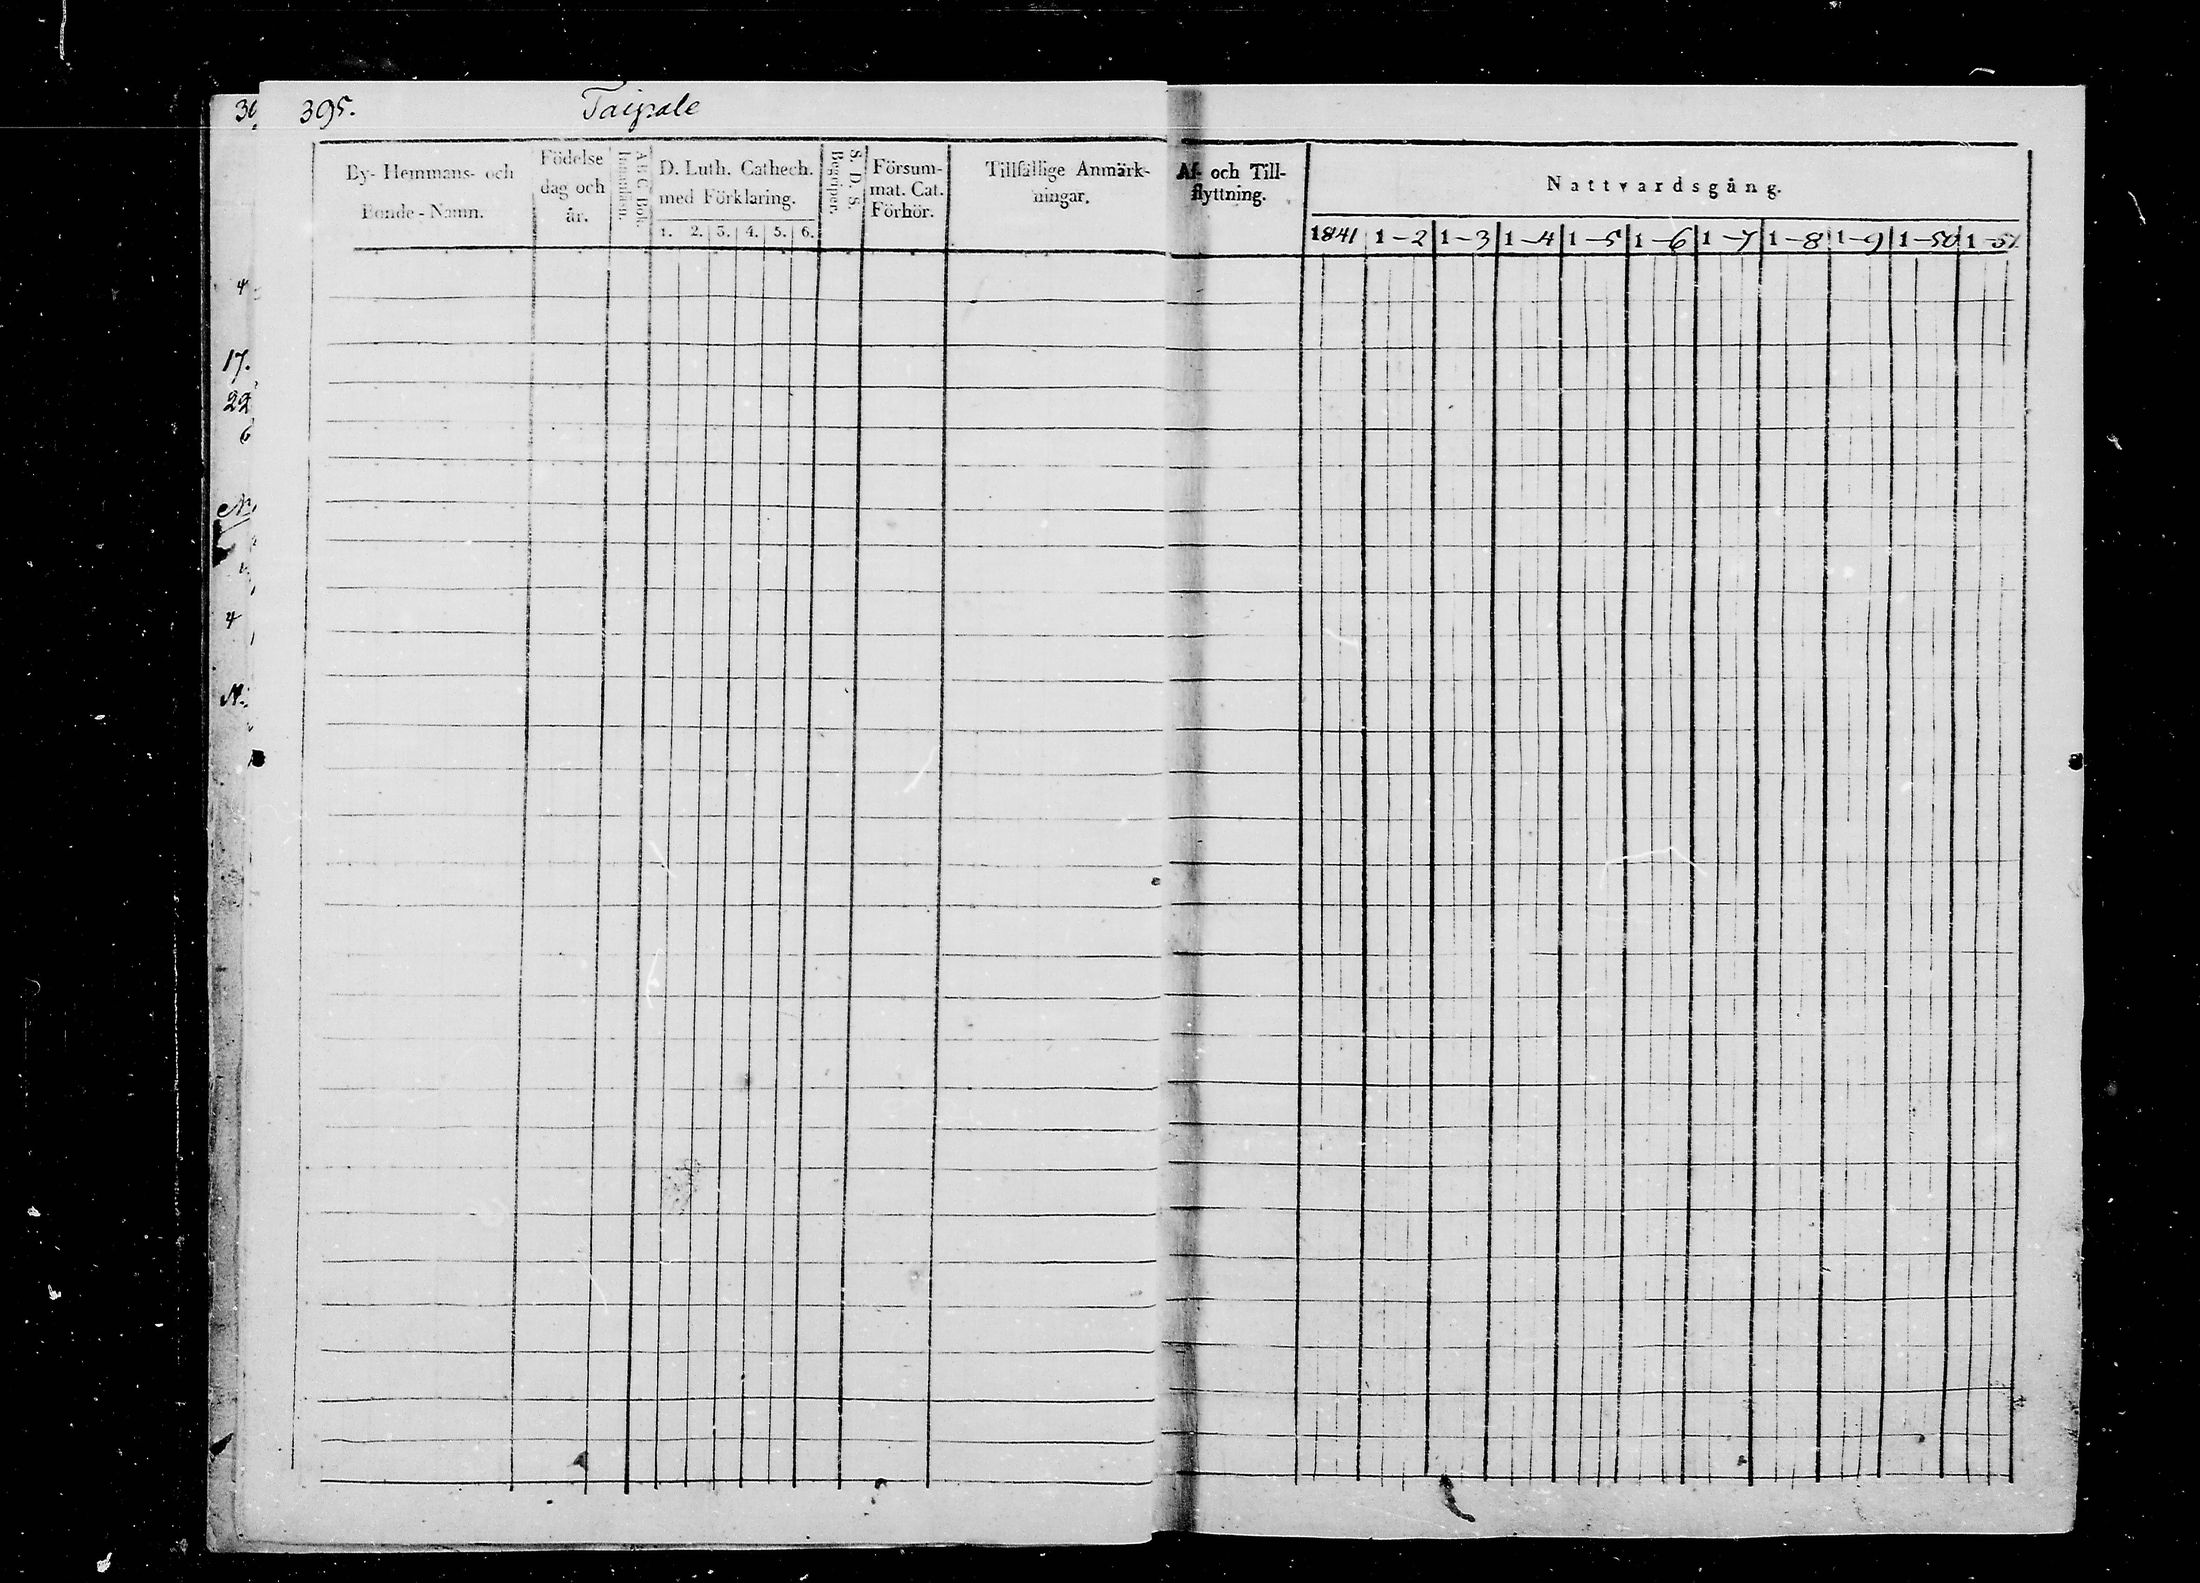 395.
Taipale
By- Hemmans- och
Bonde-Namn.
Födelse
dag och
år.
A B C Bok.
Innantill.
D. Luth. Cathech.
med Förklaring.
1. 2. 3. 4. 5. 6.
S. D. S.
Begriper.
Försum-
mat. Cat.
Förhör.
Tillfällige Anmärk-
ningar.
Af- och Till-
flyttning.
Nattvardsgång.
1841 1-2 1-3 1-4 1-5 1-6 1-7 1-8 1-9 1-50 1-51
17.
22
6
4